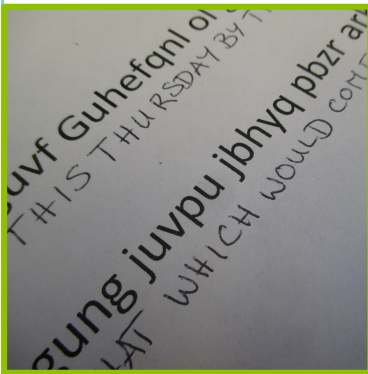 guvf Guhefqnl ol
THIS THURSDAY BY
gung juvpu jbhyq pbzr
WHICH WOULD COME